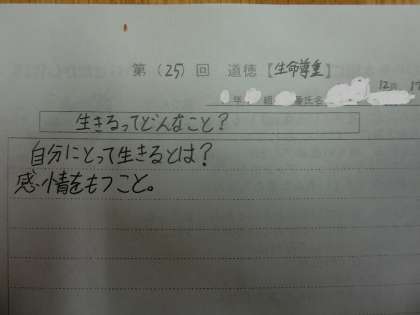 第(25)回 道徳【生命尊重】
年 組 番氏名 12月 17
生きるってどんなこと?
自分にとって生きるとは?
感情をもつこと。